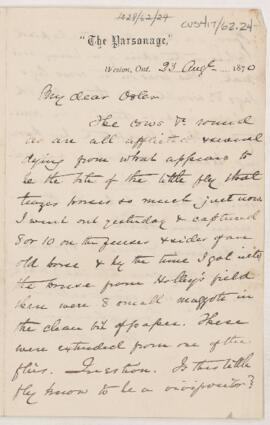 1428/62/24
CUS417/62.24
"The Parsonage,"
Weston, Ont. 23 Augt 1870
My dear Osler
The cows &c round
us are all afflicted & several
dying from what appears to
be the bite of the little fly that
teazes horses so much just now
I went out yesterday & captured
8 or 10 on the & sides of an
old horse & by the time I got into
the house from Holley's field
there were 8 small maggots in
the clean bit of paper. These
were extruded from one of the
flies. Question. Is this little
fly known to be a viviparitor?